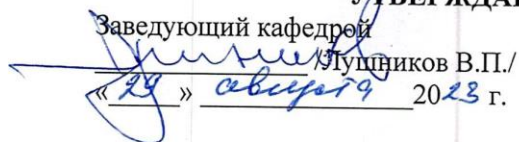 Заведующий кафедрой
/Лушников В.П./
« 29 » августа 2023 г.